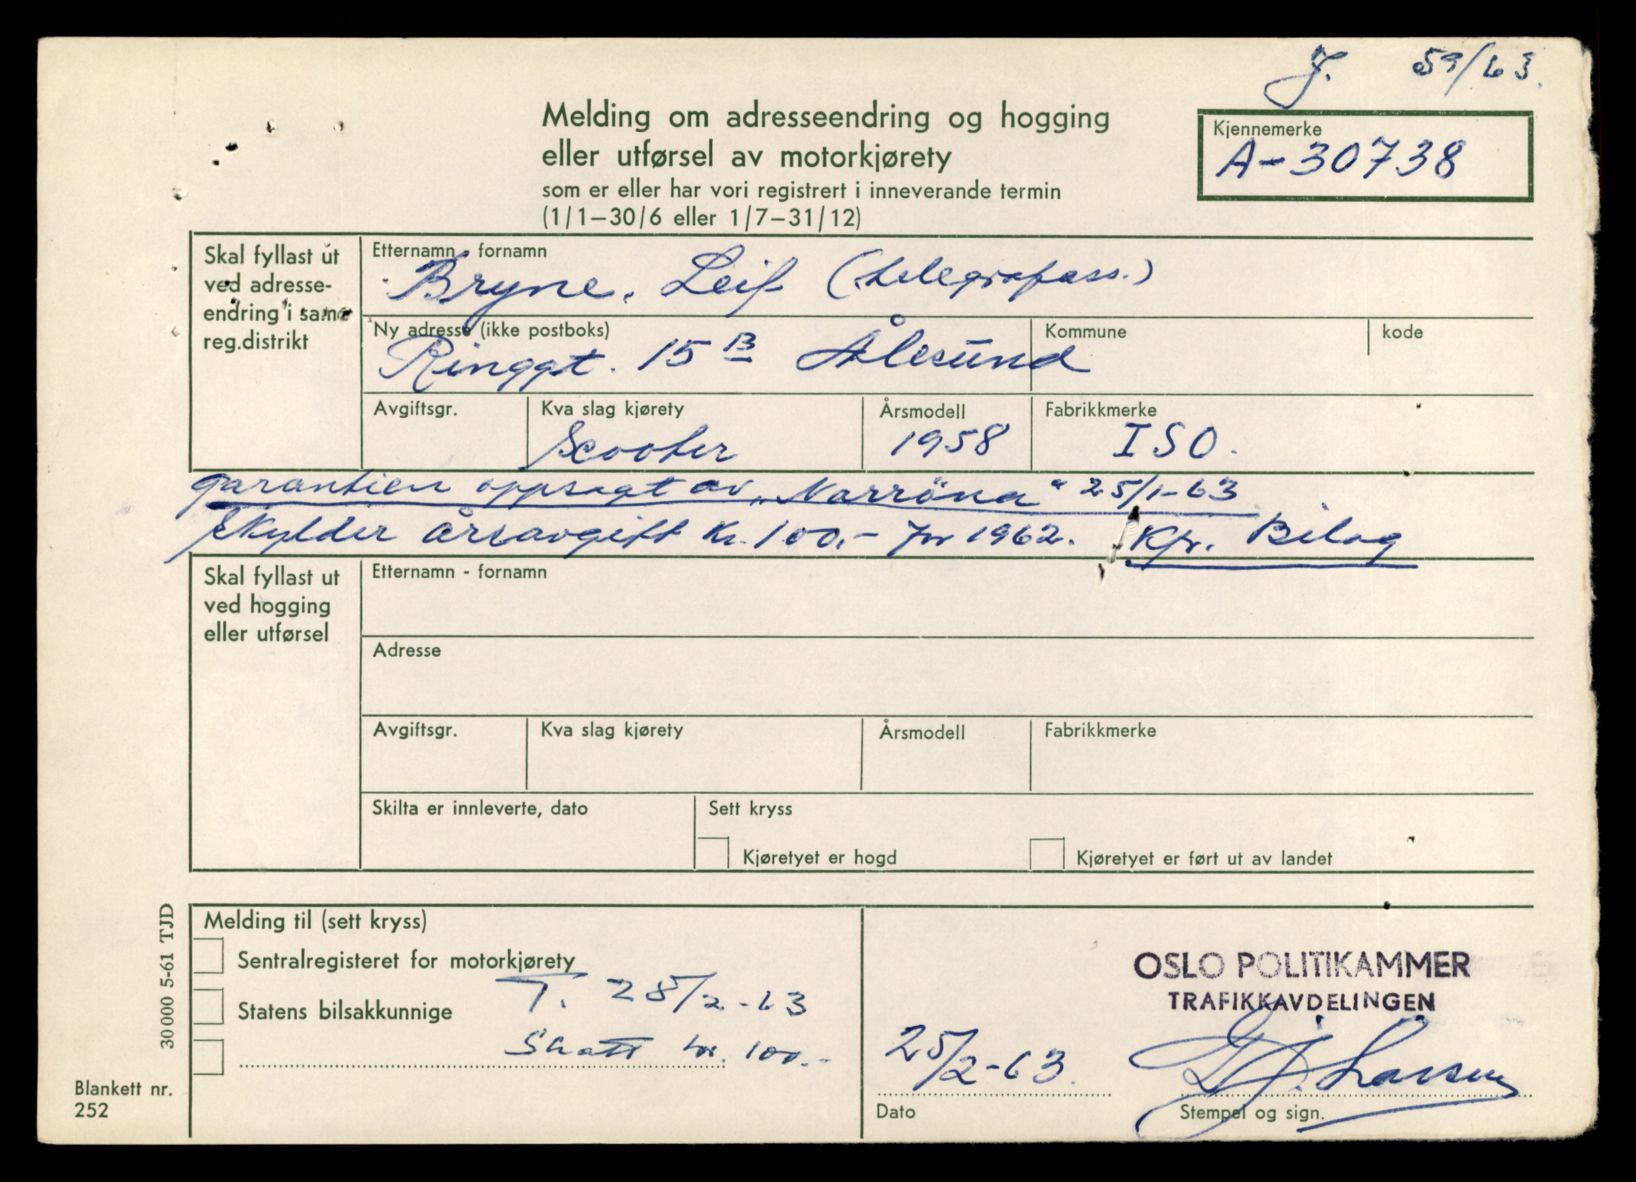 J. 59/63.
Melding om adresseendring og hogging
eller utførsel av motorkjørety
som er eller har vori registrert i inneverande termin
(1/1–30/6 eller 1/7–31/12)
Kjennemerke
A-30738
Skal fyllast ut
ved adresse-
endring i same
reg.distrikt
Etternamn - fornamn
Bryne, Leif (telegrafass.)
Ny adresse (ikke postboks)
Kommune
kode
Ringgt. 15 B Ålesund
Avgiftsgr.
Kva slag kjørety
Årsmodell
Fabrikkmerke
Scooter
1958
ISO.
garantien oppsagt av „Norröna" 25/1-63
Skylder årsavgift kr. 100,- for 1962. Kfr. Bilag
Skal fyllast ut
ved hogging
eller utførsel
Etternamn - fornamn
Adresse
Avgiftsgr.
Kva slag kjørety
Årsmodell
Fabrikkmerke
Skilta er innleverte, dato
Sett kryss
Kjøretyet er hogd
Kjøretyet er ført ut av landet
Melding til (sett kryss)
Sentralregisteret for motorkjørety
T. 28/2-63
Statens bilsakkunnige
Skatt kr. 100.-
OSLO POLITIKAMMER
TRAFIKKAVDELINGEN
25/2-63.
Larsen
Dato
Stempel og sign.
30 000 5-61 TJD
Blankett nr.
252